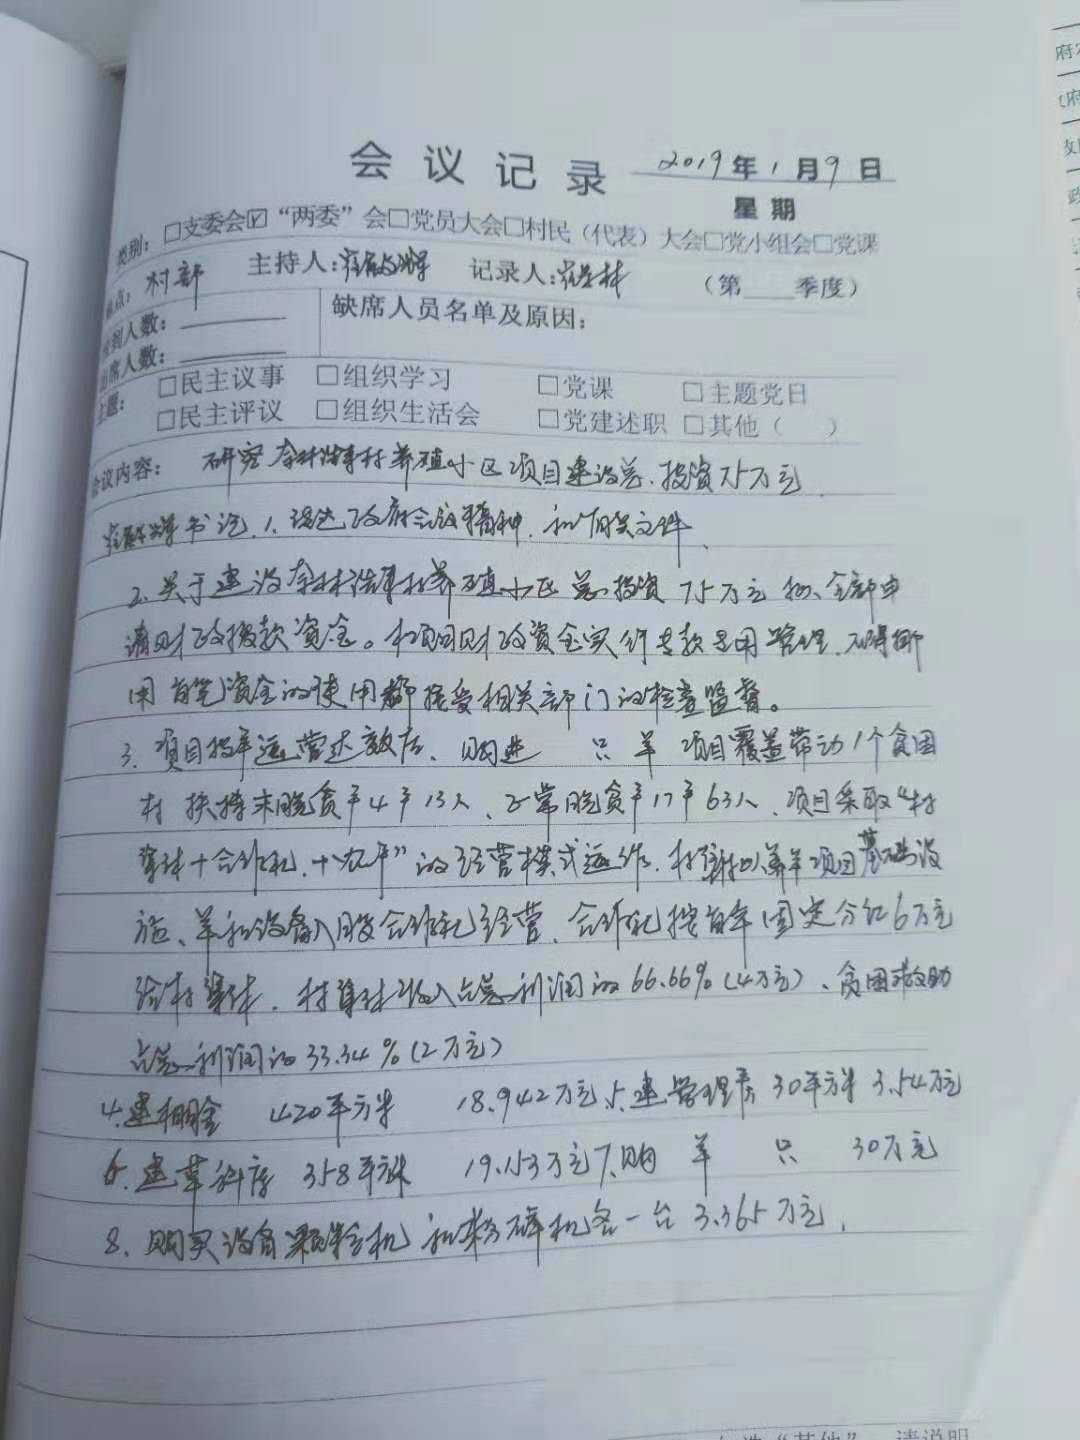 会议记录 2019年1月9日
星期
类别：□支委会☑“两委”会□党员大会□村民（代表）大会□党小组会□党课
点：村部 主持人： 记录人： （第 季度）
到人数： 缺席人员名单及原因：
席人数：
主题： □民主议事 □组织学习 □党课 □主题党日
□民主评议 □组织生活会 □党建述职 □其他（ ）
会议内容： 研究 村养殖小区项目建设总投资75万元
书记 1、 政府会议精神，和有关文件
2、关于建设 村养殖小区总投资75万元 全部申
请财政拨款资金。对项目财政资金实行专款专用管理，不得挪
用 每笔资金的使用都接受相关部门的检查监督。
3、项目投产运营达效后、购进 只羊 项目覆盖带动1个贫困
村 扶持未脱贫户4户13人、正常脱贫户17户63人、项目采取“村
集体+合作社+农户”的经营模式运作、村集体以养羊项目基础设
施、羊和设备入股合作社经营、合作社按每年固定分红6万元
给村集体，村集体收入占总利润的66.66%（4万元）、贫困救助
占总利润的33.34%（2万元）
4、建棚舍 420平方米 18.942万元 5、建管理房30平方米 3.54万元
6、建草料库 358平方米 19.153万元 7、购 羊 只 30万元
8、购买设备颗粒机和粉碎机各一台3.365万元，
请说明